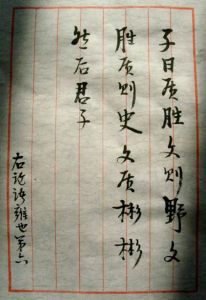 子曰质胜文则野文
胜质则史文质彬彬
然后君子
右论语雍也第六